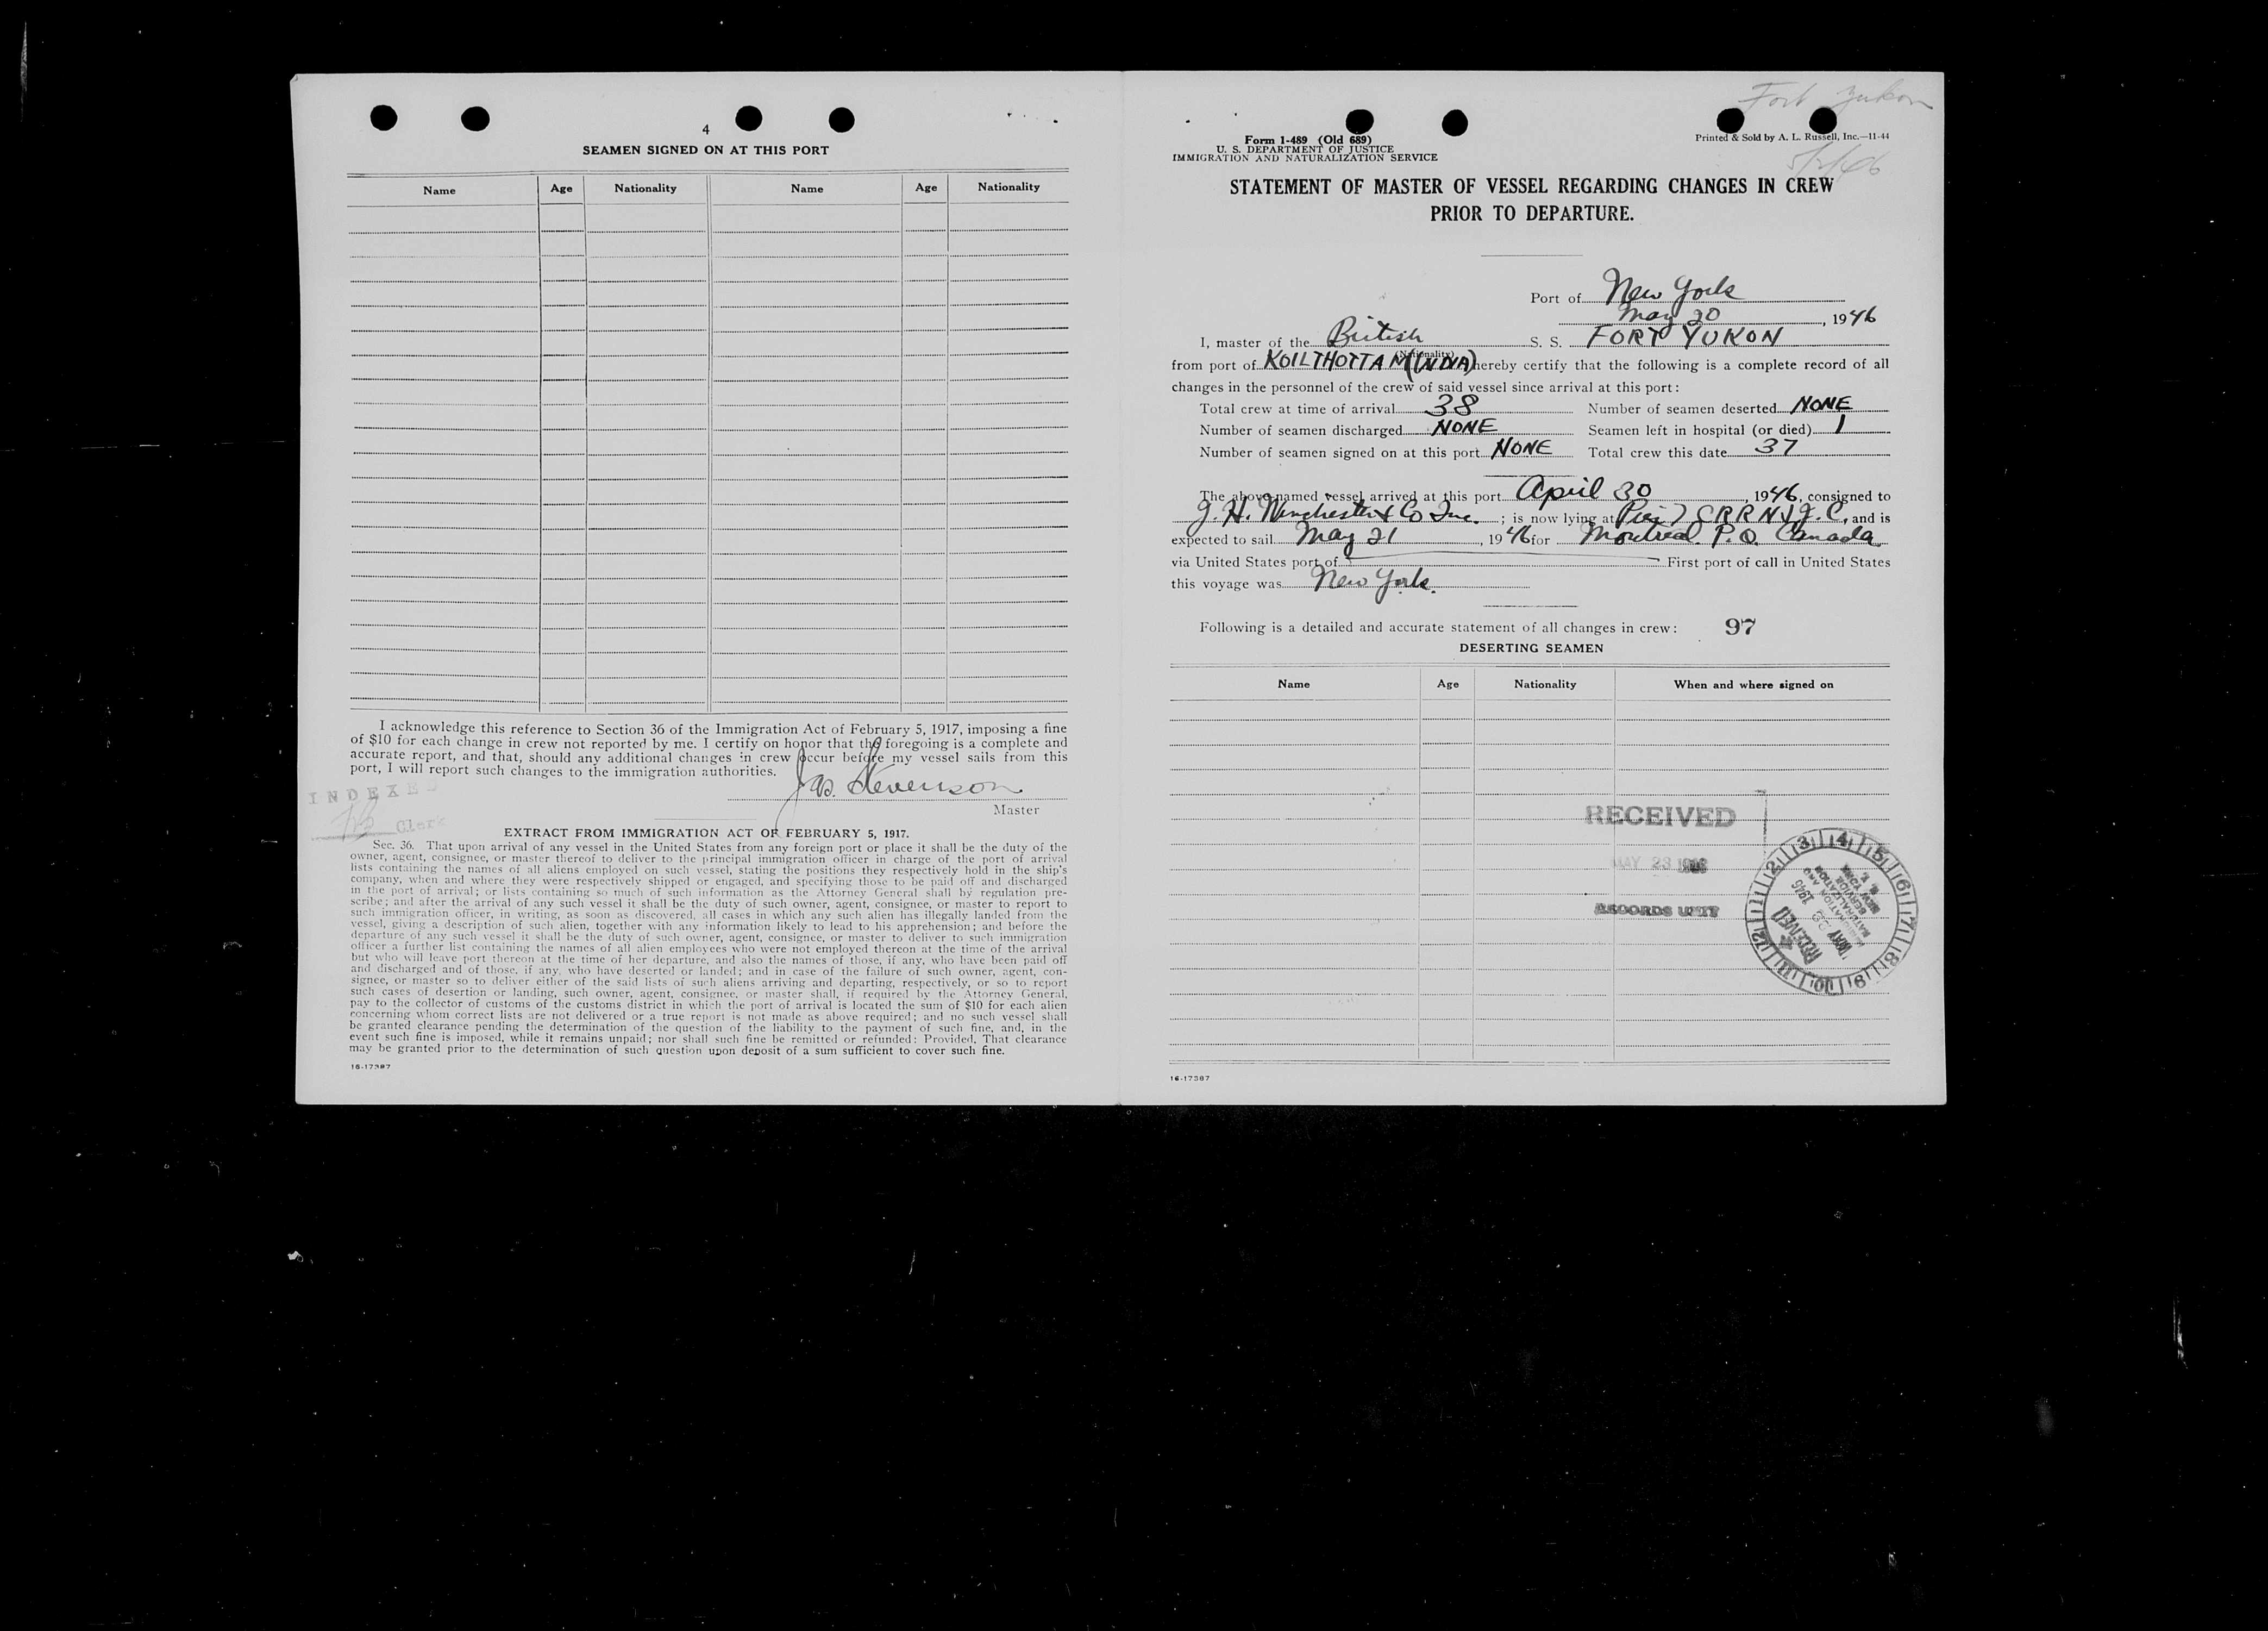 4
SEAMEN SIGNED ON AT THIS PORT
Name Age Nationality Name Age Nationality
I acknowledge this reference to Section 36 of the Immigration Act of February 5, 1917, imposing a fine
of $10 for each change in crew not reported by me. I certify on honor that the foregoing is a complete and
accurate report, and that, should any additional changes in crew occur before my vessel sails from this
port, I will report such changes to the immigration authorities.
Jas. Stevenson
Master
INDEXED
Clerk
EXTRACT FROM IMMIGRATION ACT OF FEBRUARY 5, 1917.
Sec. 36. That upon arrival of any vessel in the United States from any foreign port or place it shall be the duty of the
owner, agent, consignee, or master thereof to deliver to the principal immigration officer in charge of the port of arrival
lists containing the names of all aliens employed on such vessel, stating the positions they respectively hold in the ship's
company, when and where they were respectively shipped or engaged, and specifying those to be paid off and discharged
in the port of arrival; or lists containing so much of such information as the Attorney General shall by regulation pre-
scribe; and after the arrival of any such vessel it shall be the duty of such owner, agent, consignee, or master to report to
such immigration officer, in writing, as soon as discovered, all cases in which any such alien has illegally landed from the
vessel, giving a description of such alien, together with any information likely to lead to his apprehension; and before the
departure of any such vessel it shall be the duty of such owner, agent, consignee, or master to deliver to such immigration
officer a further list containing the names of all alien employees who were not employed thereon at the time of the arrival
but who will leave port thereon at the time of her departure, and also the names of those, if any, who have been paid off
and discharged and of those, if any, who have deserted or landed; and in case of the failure of such owner, agent, con-
signee, or master so to deliver either of the said lists of such aliens arriving and departing, respectively, or so to report
such cases of desertion or landing, such owner, agent, consignee, or master shall, if required by the Attorney General,
pay to the collector of customs of the customs district in which the port of arrival is located the sum of $10 for each alien
concerning whom correct lists are not delivered or a true report is not made as above required; and no such vessel shall
be granted clearance pending the determination of the question of the liability to the payment of such fine, and, in the
event such fine is imposed, while it remains unpaid; nor shall such fine be remitted or refunded: Provided, That clearance
may be granted prior to the determination of such question upon deposit of a sum sufficient to cover such fine.
16-17387
Fort Yukon
Form 1-489 (Old 689)
U. S. DEPARTMENT OF JUSTICE
IMMIGRATION AND NATURALIZATION SERVICE
Printed & Sold by A. L. Russell, Inc.—11-44
STATEMENT OF MASTER OF VESSEL REGARDING CHANGES IN CREW
PRIOR TO DEPARTURE.
Port of New York
May 20, 1946
I, master of the British S. S. FORT YUKON
(Nationality)
from port of KOILTHOTTAM (INDIA) hereby certify that the following is a complete record of all
changes in the personnel of the crew of said vessel since arrival at this port:
Total crew at time of arrival 38 Number of seamen deserted NONE
Number of seamen discharged NONE Seamen left in hospital (or died) 1
Number of seamen signed on at this port NONE Total crew this date 37
The above-named vessel arrived at this port April 30, 1946, consigned to
J. H. Winchester & Co Inc.; is now lying at Pier 7 CRRNJ J.C., and is
expected to sail May 21, 1946 for Montreal P.Q. Canada
via United States port of First port of call in United States
this voyage was New York.
Following is a detailed and accurate statement of all changes in crew: 97
DESERTING SEAMEN
Name Age Nationality When and where signed on
RECEIVED
MAY 23 1946
RECORDS UNIT
1 2 3 4 5 6 7 8 9 10 11 12
RECEIVED
MAY 1946
16-17387